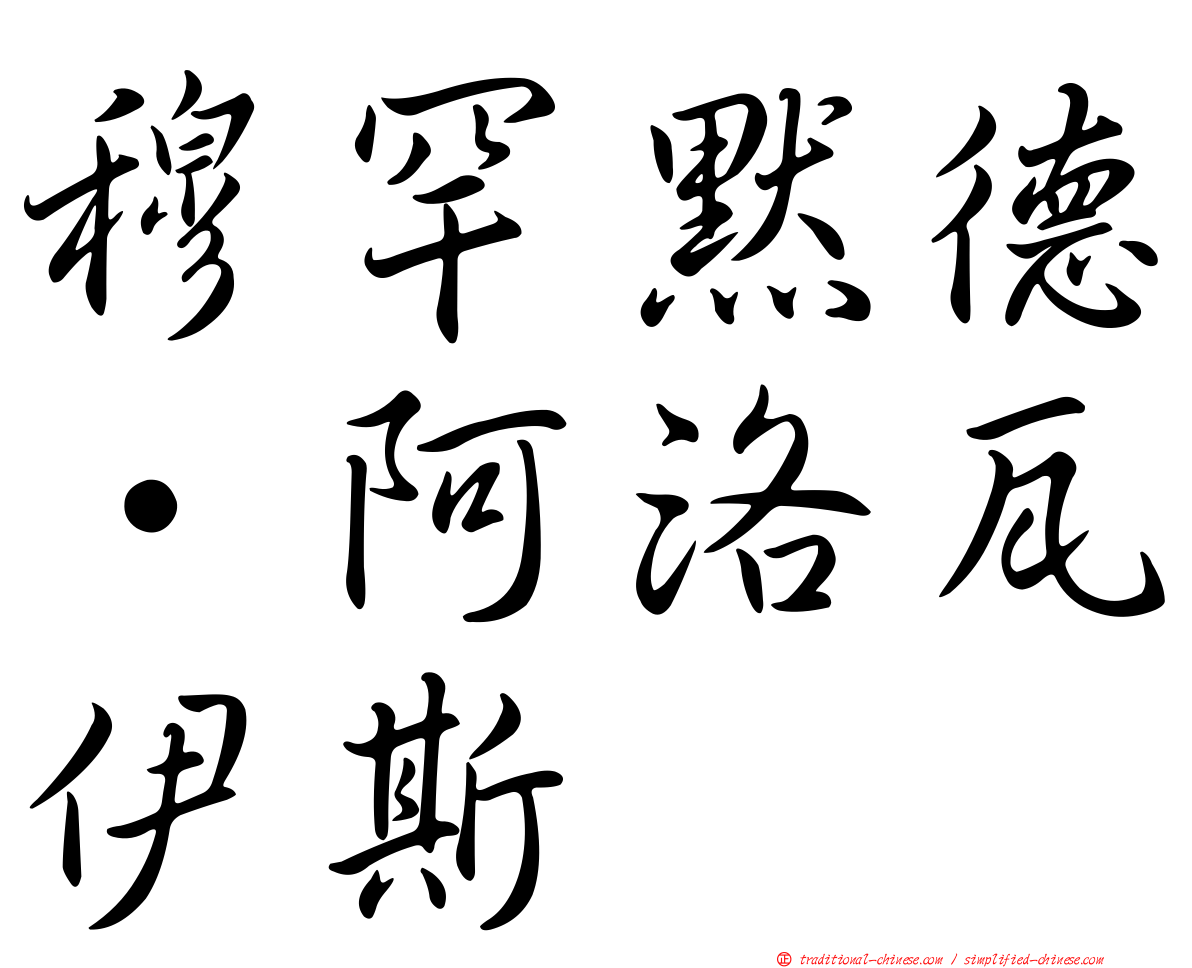 穆罕默德
·阿洛瓦
伊斯
正 traditional-chinese.com / simplified-chinese.com